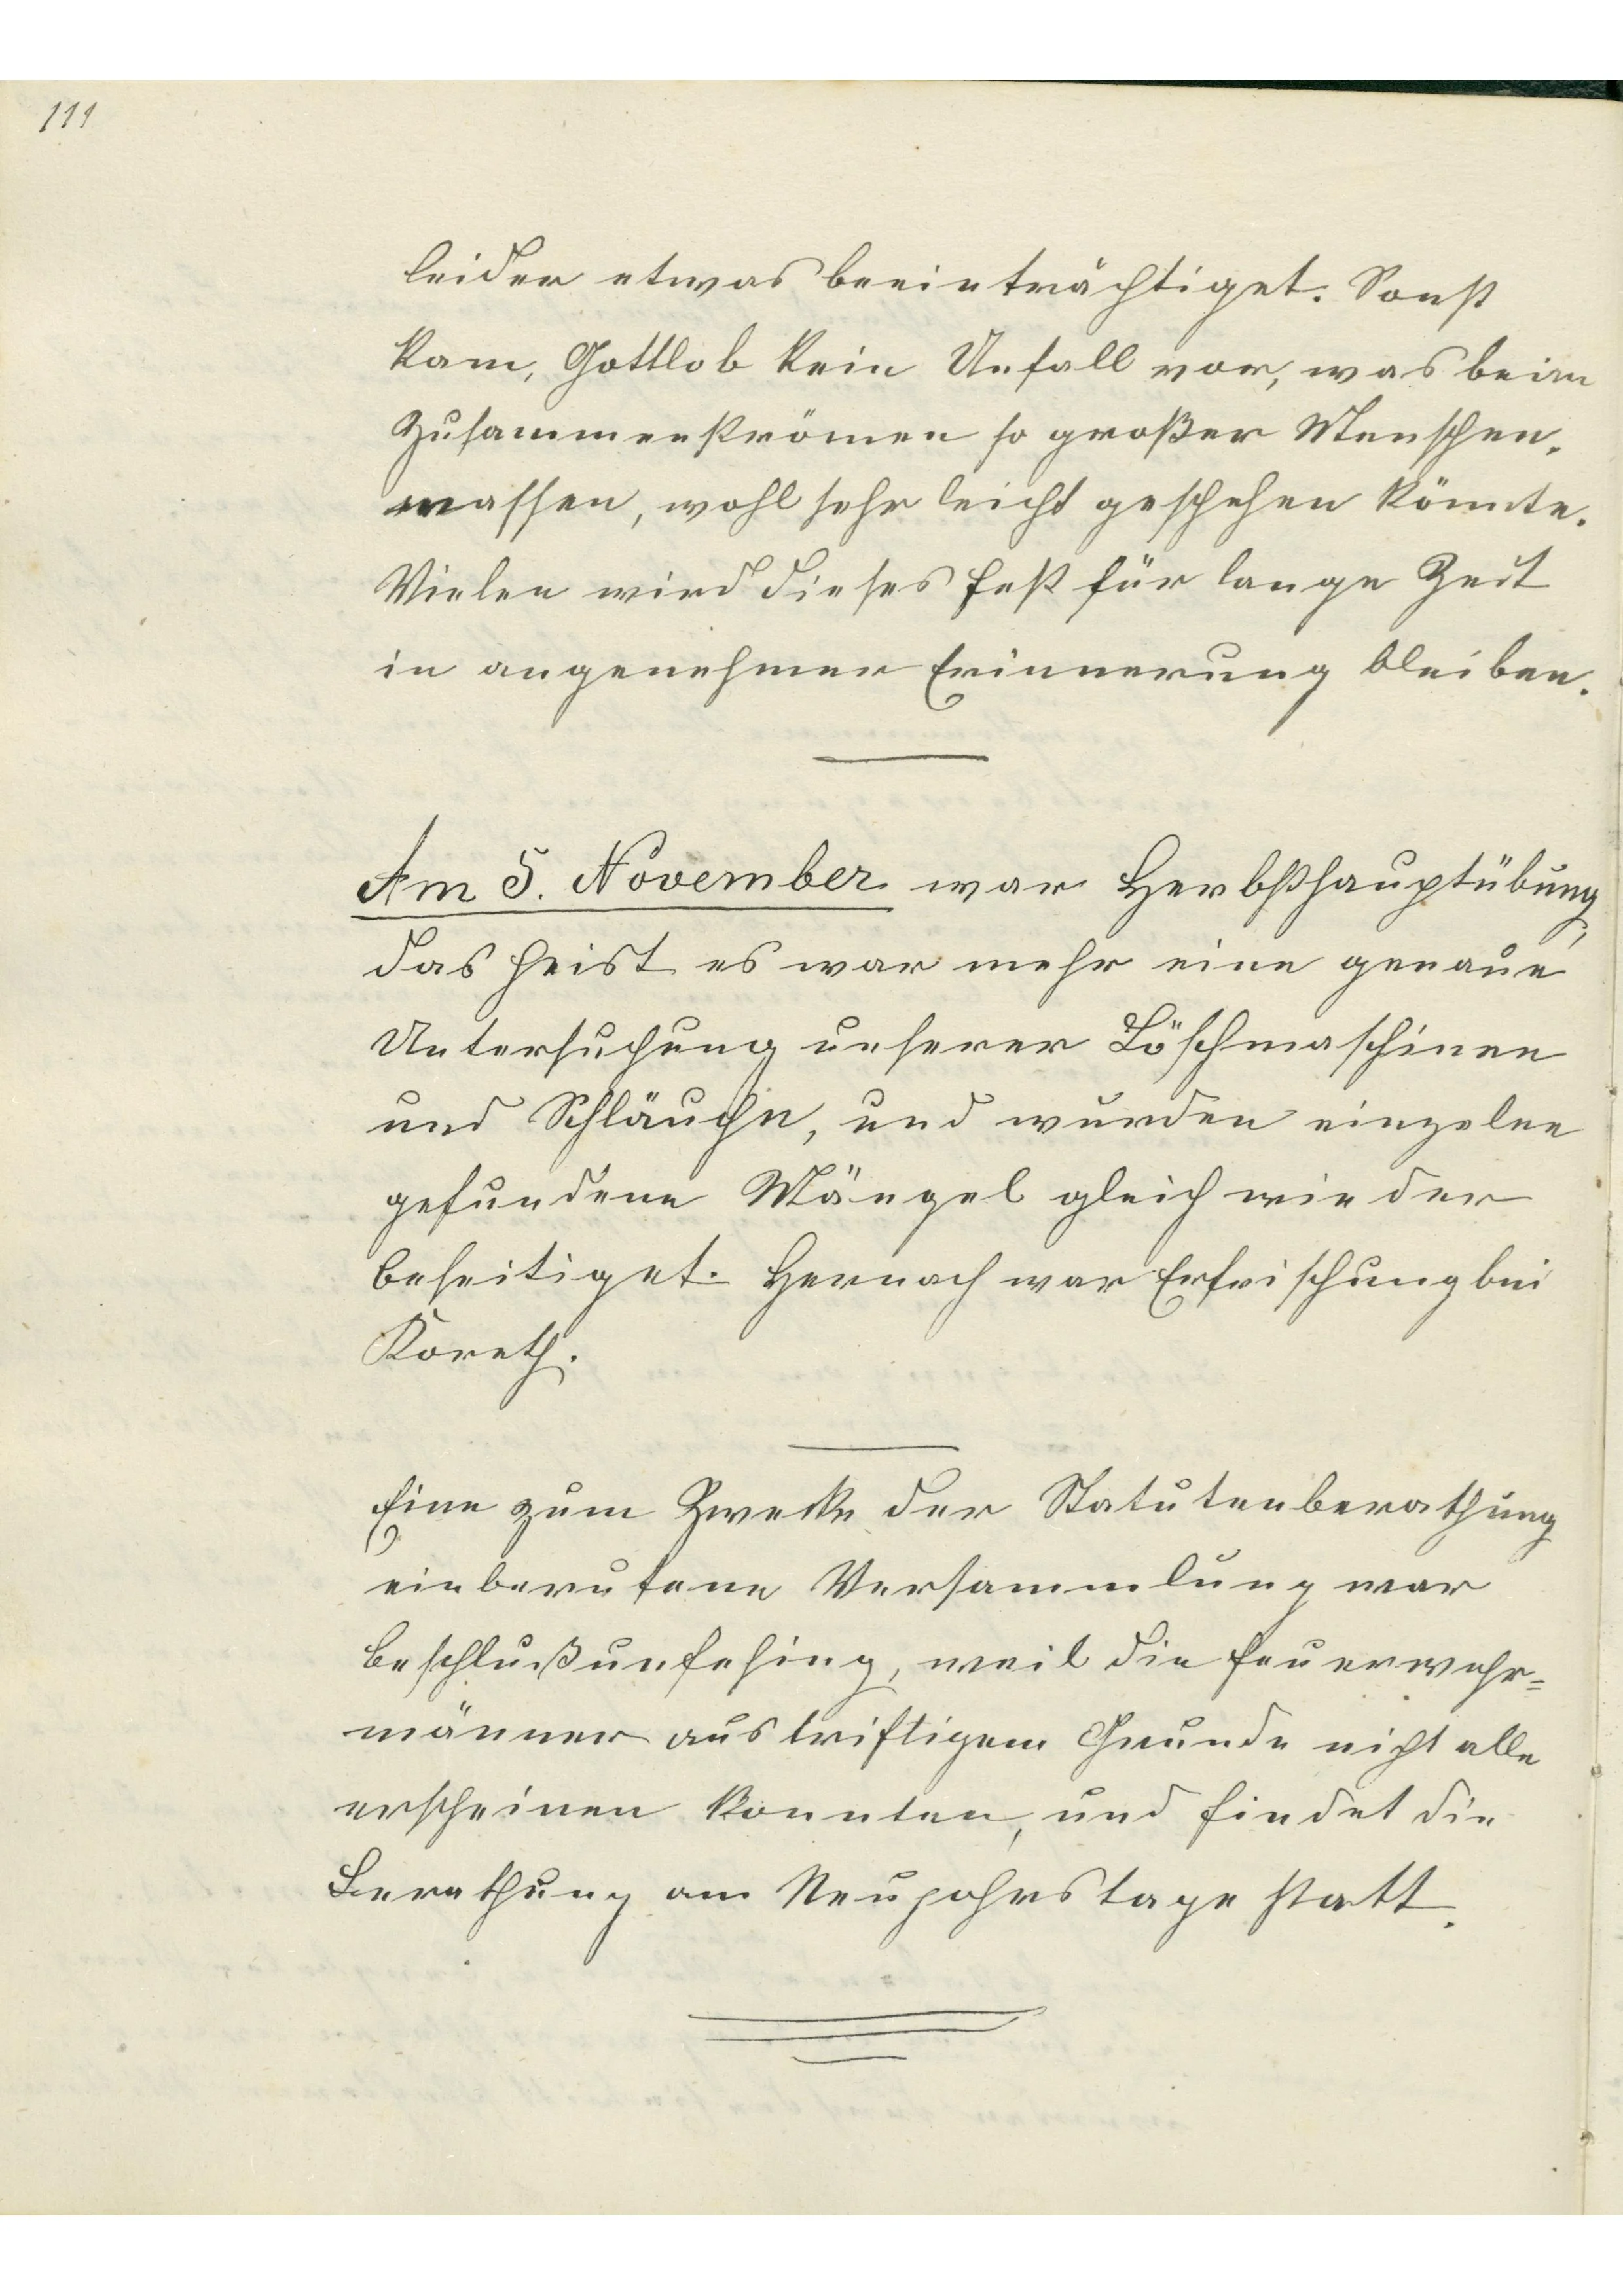 111
leider etwas beeinträchtiget. Sonst
kam, Gottlob kein Unfall vor, was beim
Zusammenströmen so großer Menschen-
massen, wohl sehr leicht geschehen könnte.
Vielen wird dieses Fest für lange Zeit
in angenehmer Erinnerung bleiben.
Am 5. November war Herbsthauptübung,
das heist es war mehr eine genaue
Untersuchung unserer Löschmaschinen
und Schläuche, und wurden einzelne
gefundene Mängel gleich wieder
beseitiget. Hernach war Erfrischung bei
Koreth.
Eine zum Zwecke der Statutenberathung
einberufene Versammlung war
beschlußunfehig, weil die Feuerwehr=
männer aus triftigem Grunde nicht alle
erscheinen konnten, und findet die
Berathung am Neujahrstage statt.